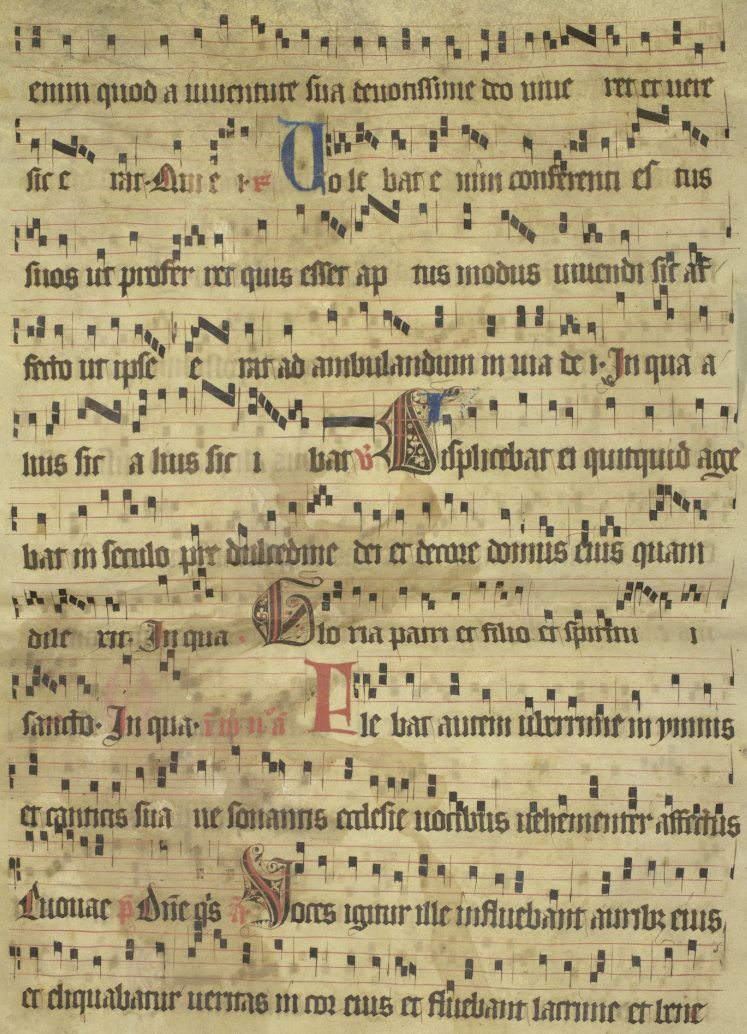 enim quod a iuuentute sua deuotissime deo uiue ret et uere
sic e rat. Qui e r.
Uo le bat e nim conferenti es tus
suos ut profer ret quis esset ap tus modus uiuendi sic af
fecto ut ipse e rat ad ambulandum in uia de i. In qua a
lius sic a lius sic i bat v Displicebat ei quitquid age
bat in seculo pre dulcedine dei et decore domus eius quam
dile xit. In qua. Glo ria patri et filio et spiritui
sancto. In qua. Fle bat autem uberrime in ymnis
et canticis sua ue sonantis ecclesie uocibus uehementer affectus
Euouae p Dne qs Voces igitur ille influebant aurib3 eius
et eliquabatur ueritas in cor eius et fluebant lacrime et bene